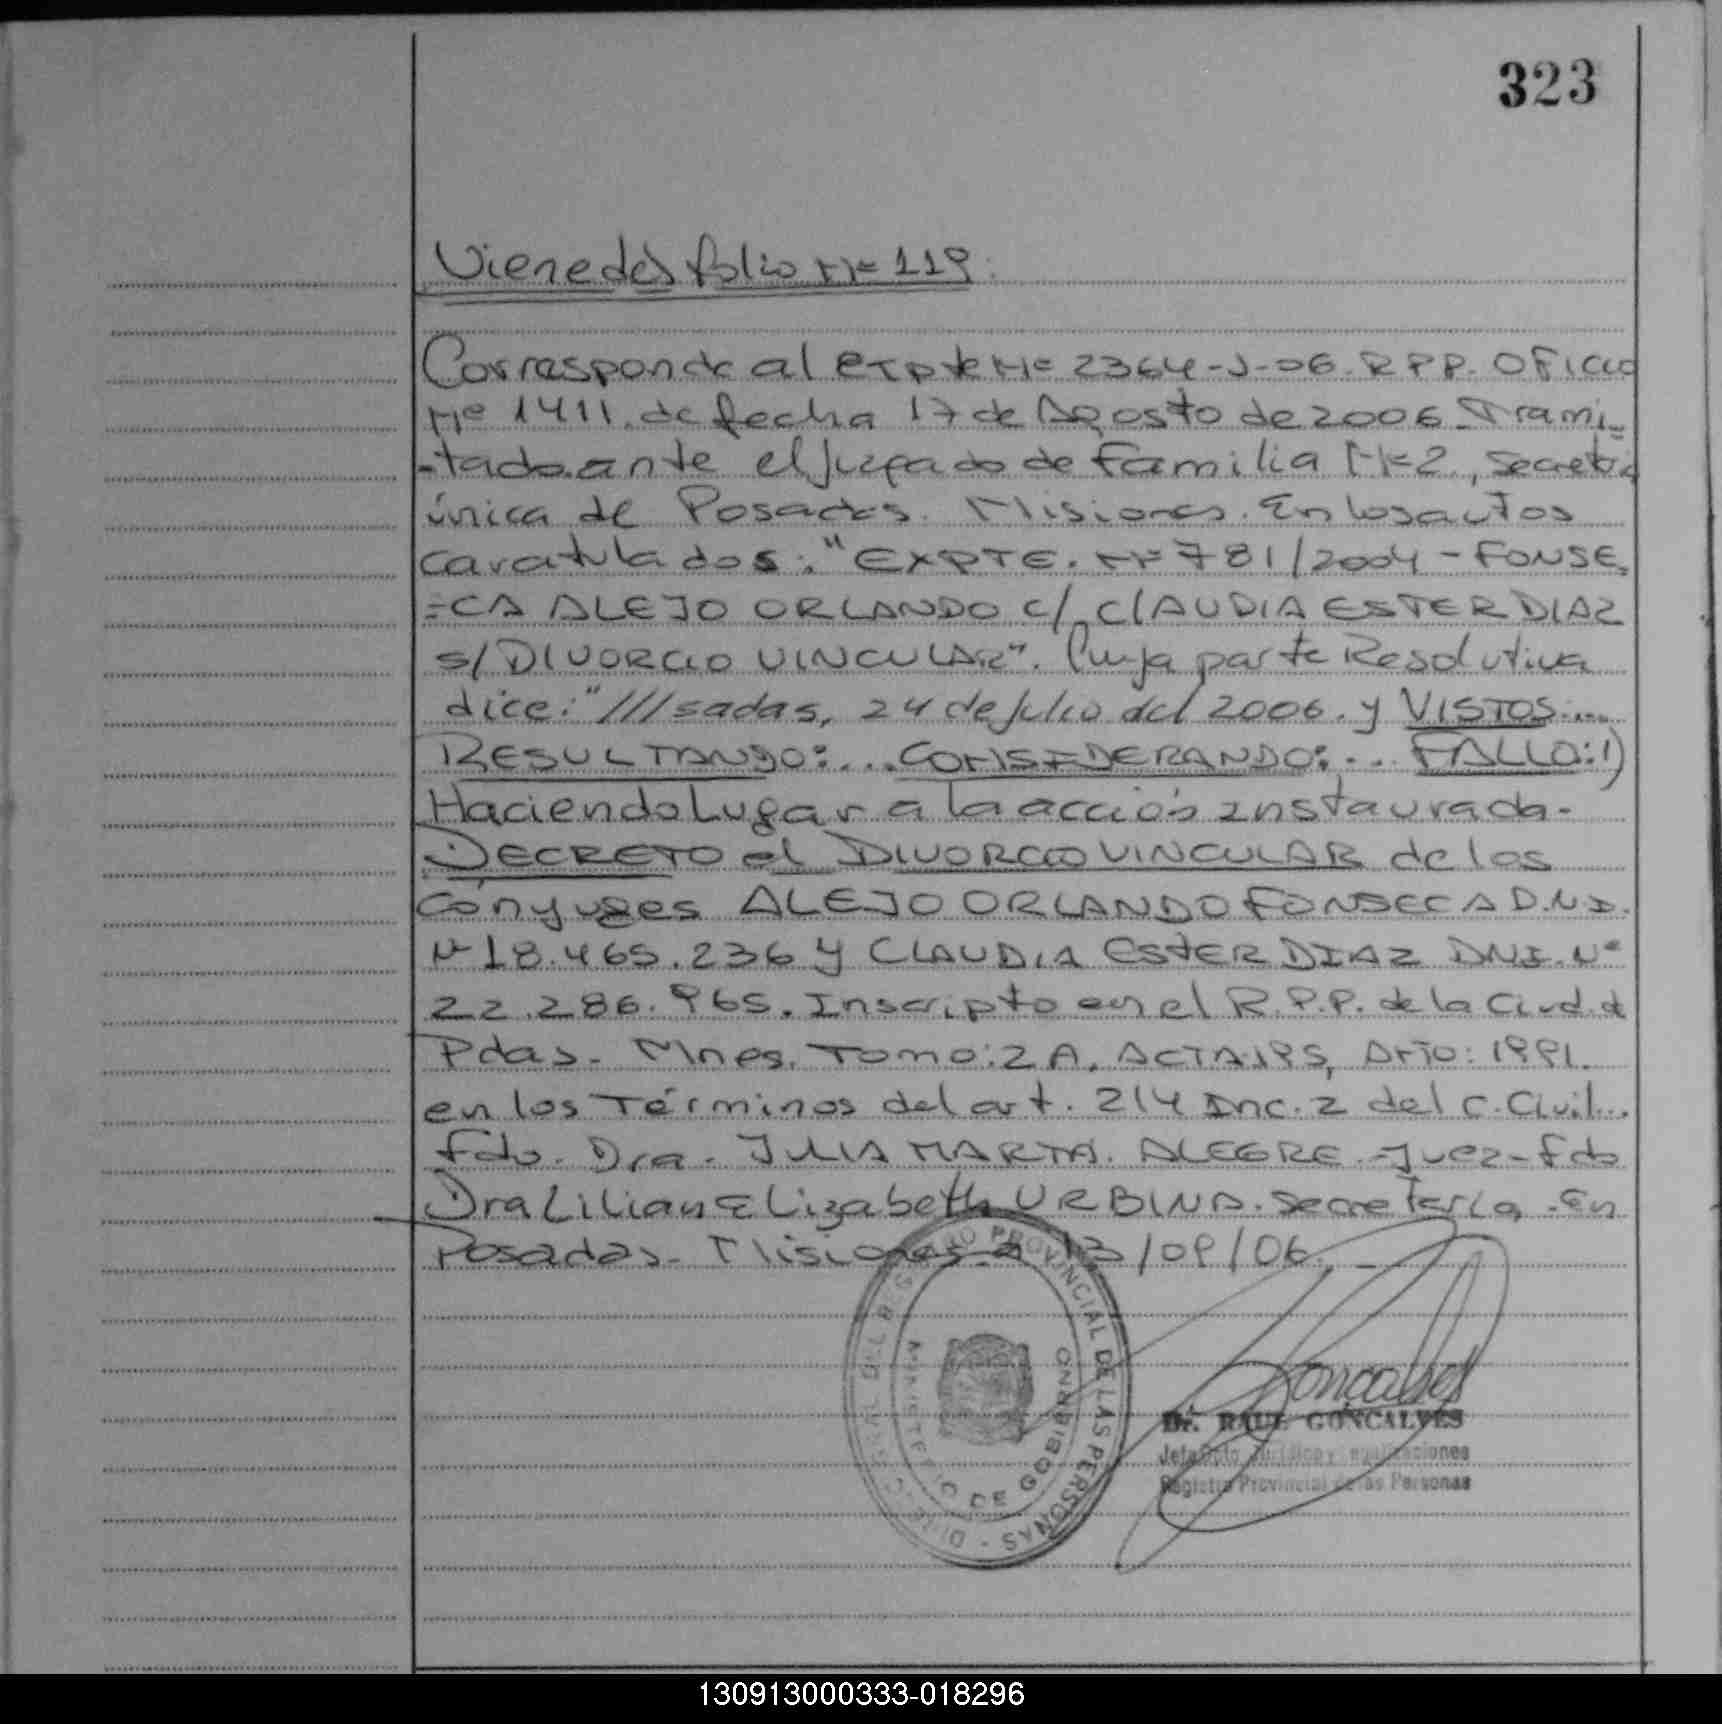 323
Viene del folio Nº 119.
Corresponde al expte Nº 2364-J-06. R.P.P. Oficio
Nº 1411. de fecha 17 de Agosto de 2006. Trami-
-tado ante el Juzgado de Familia Nº 2, secret.
única de Posadas. Misiones. En los autos
caratulados: "EXPTE. Nº 781/2004 - FONSE=
=CA ALEJO ORLANDO C/ CLAUDIA ESTER DIAZ
S/ DIVORCIO VINCULAR". Cuya parte Resolutiva
dice: "///sadas, 24 de julio del 2006. y VISTOS:...
RESULTANDO:... CONSIDERANDO:... FALLO: 1)
Haciendo Lugar a la acción instaurada.
DECRETO el DIVORCIO VINCULAR de los
cónyuges ALEJO ORLANDO FONSECA D.N.I.
Nº 18.465.236 y CLAUDIA ESTER DIAZ DNI. Nº
22.286.965. Inscripto en el R.P.P. de la Ciud. de
Pdas. Mnes. Tomo: 2A, ACTA: 195, AÑO: 1991.
en los Términos del art. 214 Inc. 2 del C. Civil..
Fdo. Dra. JULIA MARTA. ALEGRE - Juez - fdo
Dra Lilian Elizabeth URBINA. Secretaria. En
Posadas. Misiones a 13/09/06.
DIRECC. GRAL. DEL REGISTRO PROVINCIAL DE LAS PERSONAS -
MINISTERIO DE GOBIERNO
Goncalves
Dr. RAUL GONCALVES
Jefe Dpto. Jurídico y Legalizaciones
Registro Provincial de las Personas
130913000333-018296